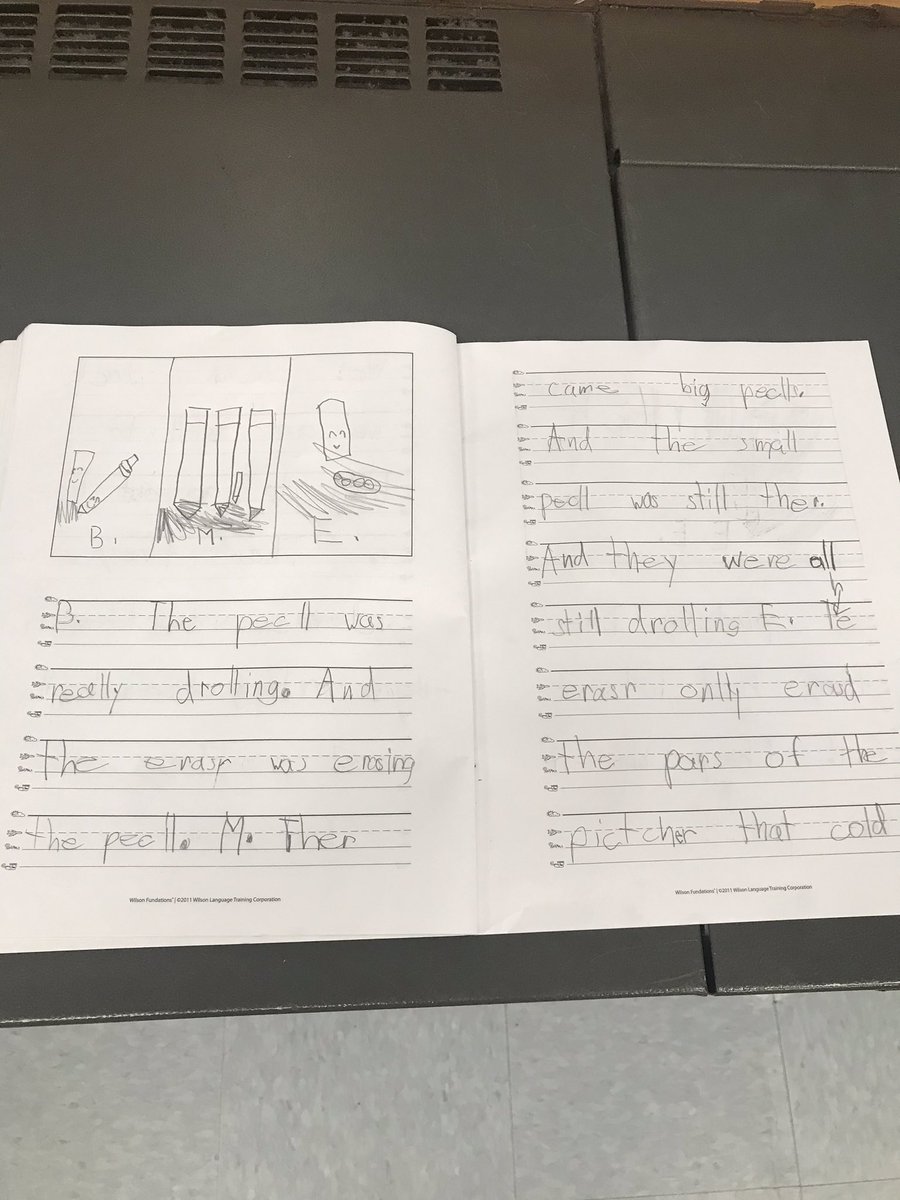 B. M. E.
B. The pecll was
recelly drolling. And
the erasr was erasing
the pecll. M. Ther
Wilson Fundations® | ©2011 Wilson Language Training Corporation
came big peclls.
And the small
pecll was still ther.
And they were all
still drolling E. Te
erasr onlly eraud
the pars of the
pictcher that cold
Wilson Fundations® | ©2011 Wilson Language Training Corporation